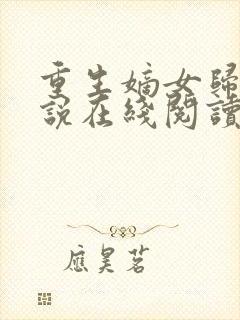 重生嫡女歸
說在綫閱讀
應昊茗